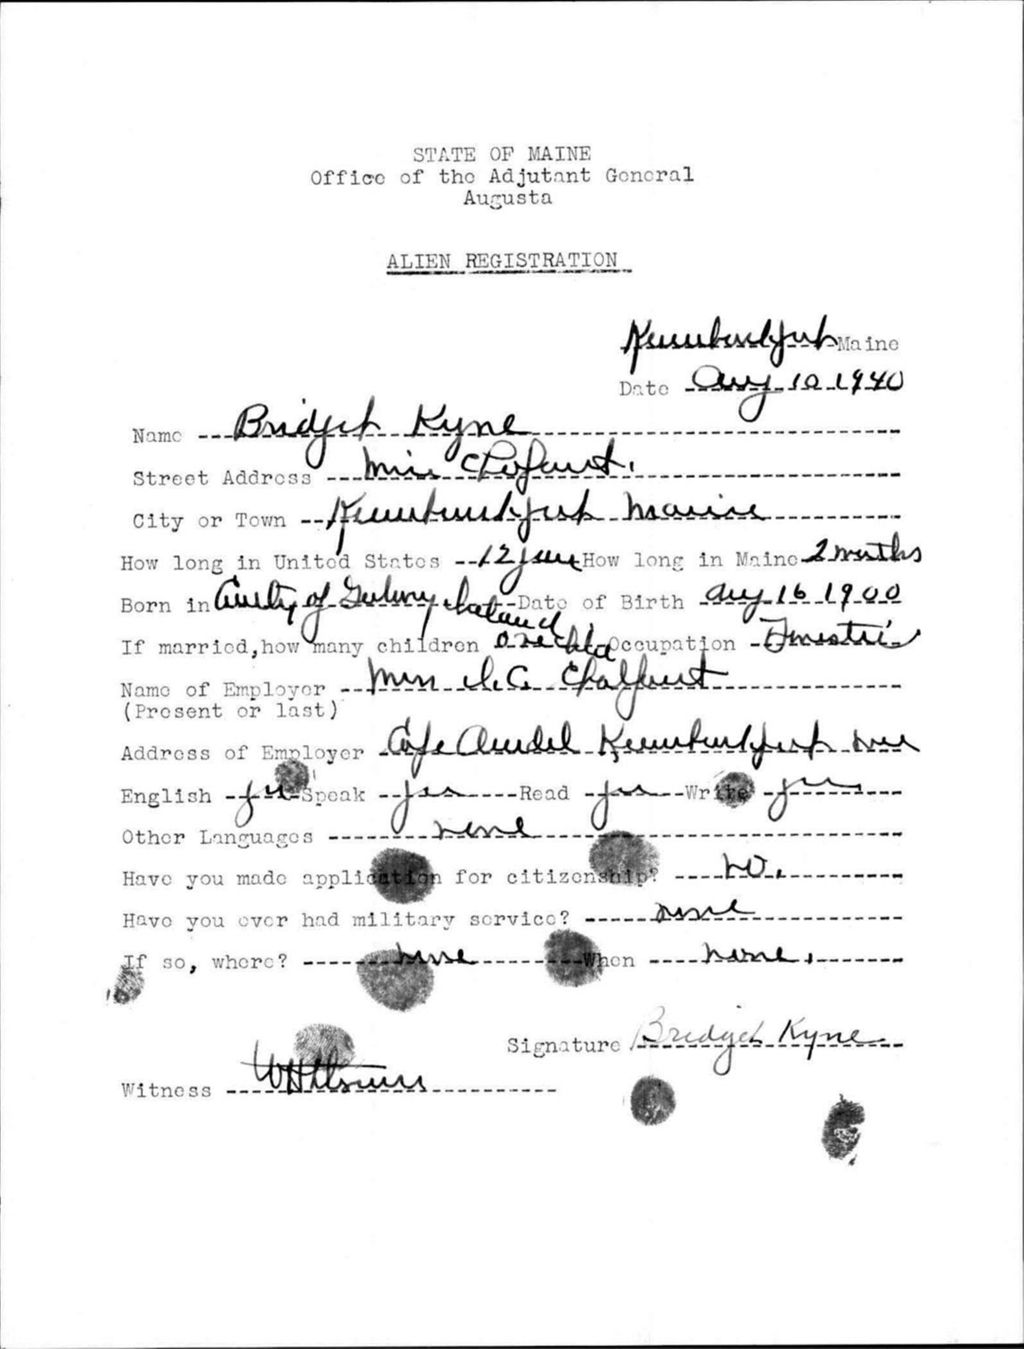 STATE OF MAINE
Office of the Adjutant General
Augusta
ALIEN REGISTRATION
Kennebunkport Maine
Date Aug 10 1940
Name Bridget Kyne
Street Address
City or Town Kennebunkport Maine
How long in United States 12 years How long in Maine 2 months
Born in County of Galway Ireland Date of Birth Aug 16 1900
If married, how many children one child Occupation Domestic
Name of Employer Chalfant
(Present or last)
Address of Employer Cape Arundel Kennebunkport me
English yes Speak yes Read yes Write yes
Other Languages none
Have you made application for citizenship? no.
Have you ever had military service? none
If so, where? none When none.
Signature Bridget Kyne
Witness